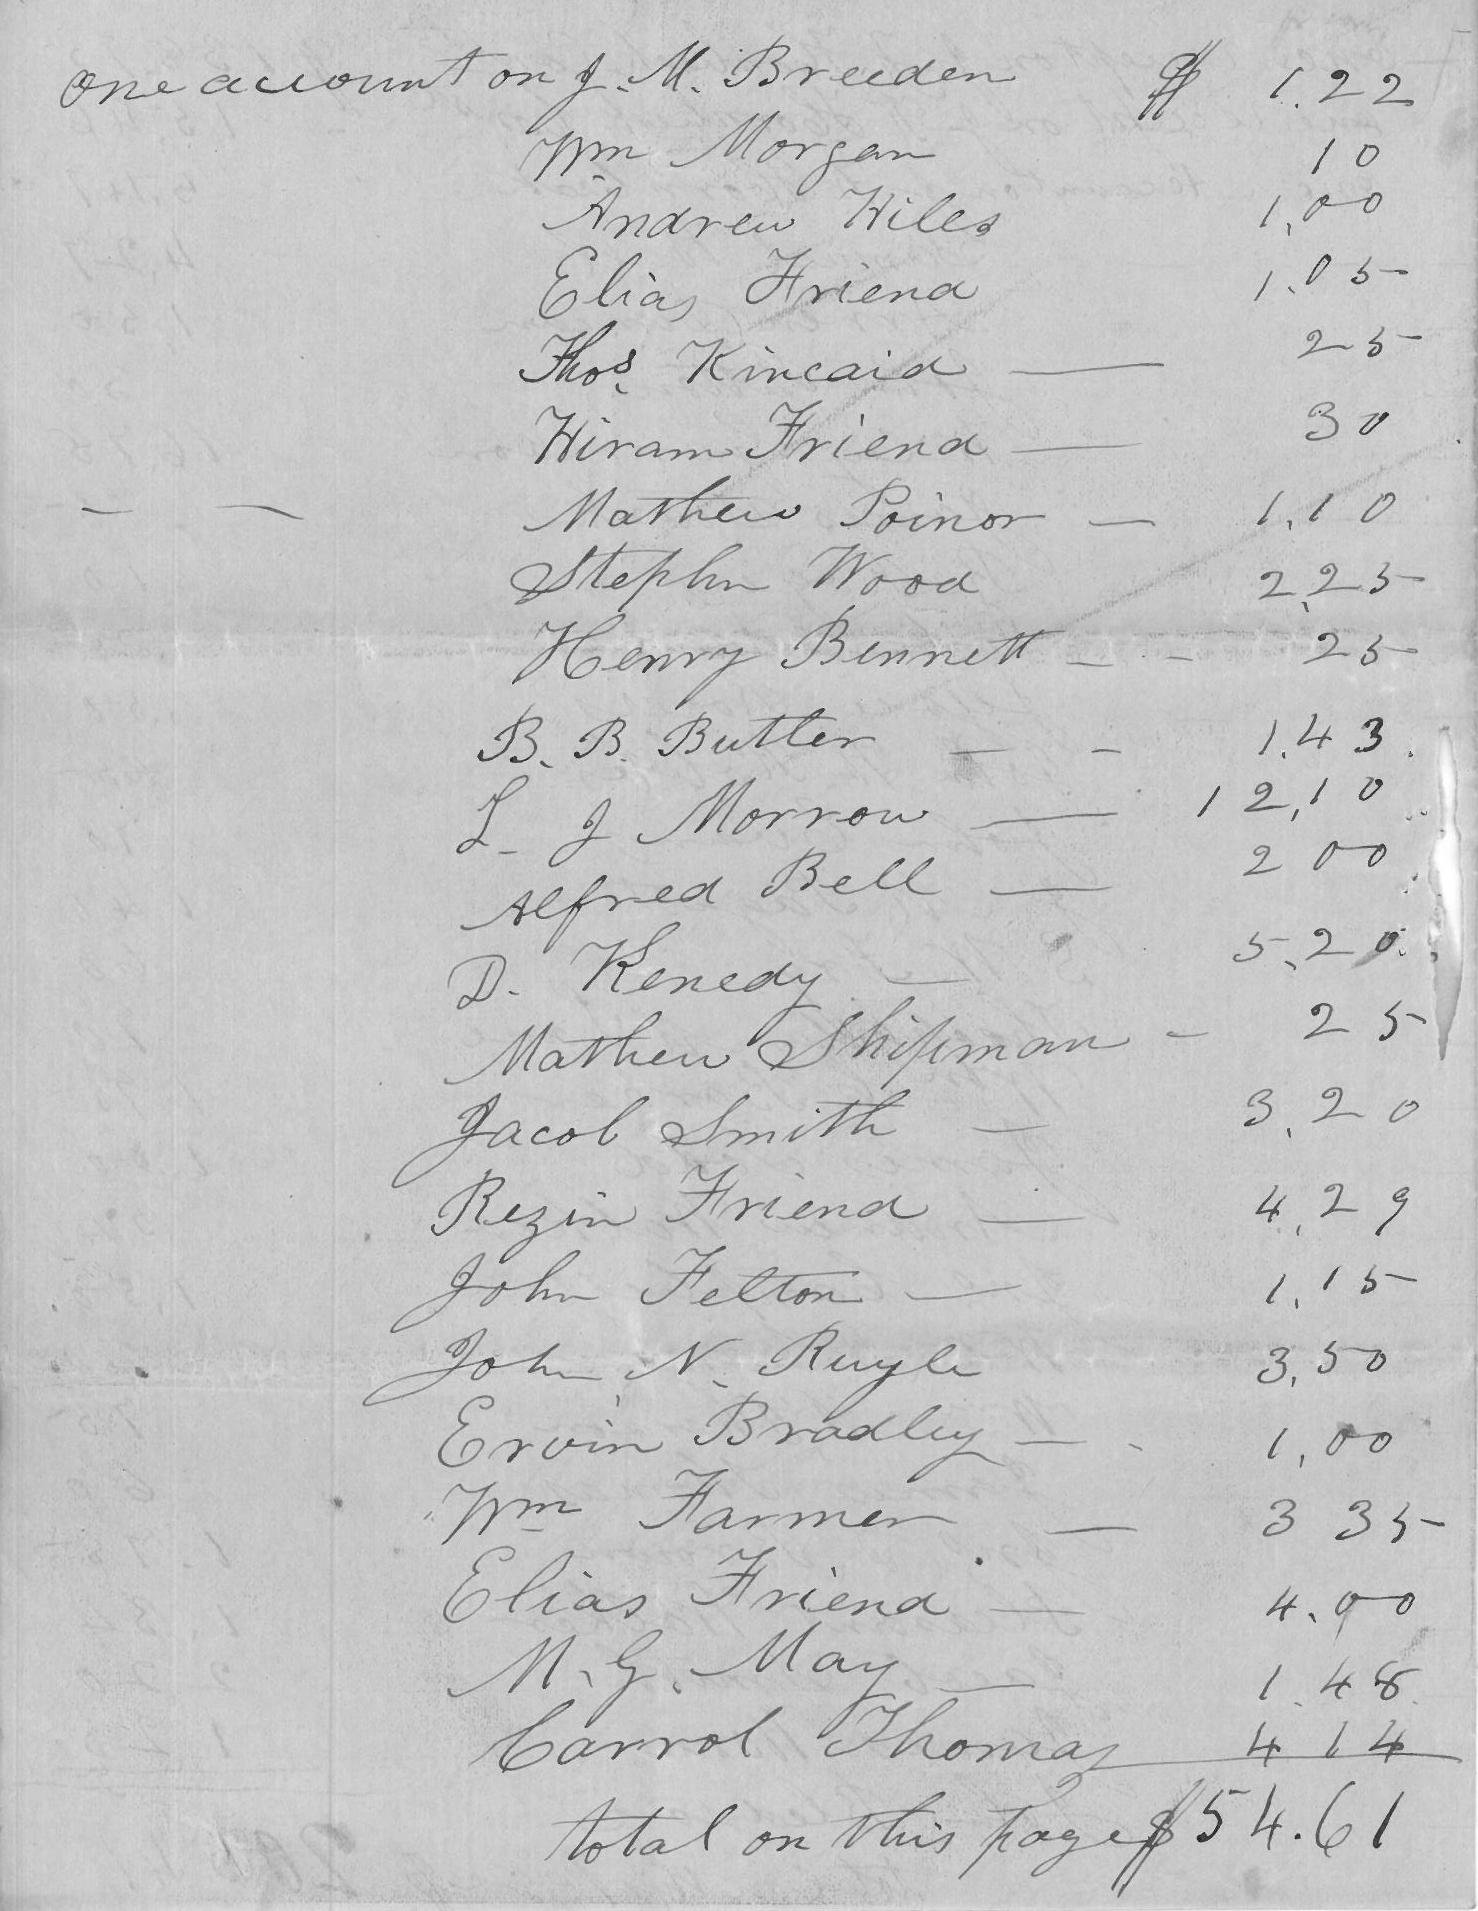 one account on J. M. Breeden $ 1.22
Wm Morgan 10
Andrew Hiles 1,00
Elias Friend 1.05
Thos. Kincaid — 25
Hiram Friend — 30
Mathew Poinor — 1,10
Stephn Wood 2,25
Henry Bennett - - 25
B. B. Butler — - 1.43
L. J Morrow — 12,10
Alfred Bell — 2 00
D. Kenedy — 5,20
Mathew Shipman - 25
Jacob Smith — 3,20
Rezin Friend — 4,29
John Felton — 1,15
John N. Ruyle 3,50
Ervin Bradley — - 1,00
Wm Farmer — 3 35
Elias Friend — 4.00
M. G. May — 1.48
Carrol Thomas 4 14
total on this page $ 54.61